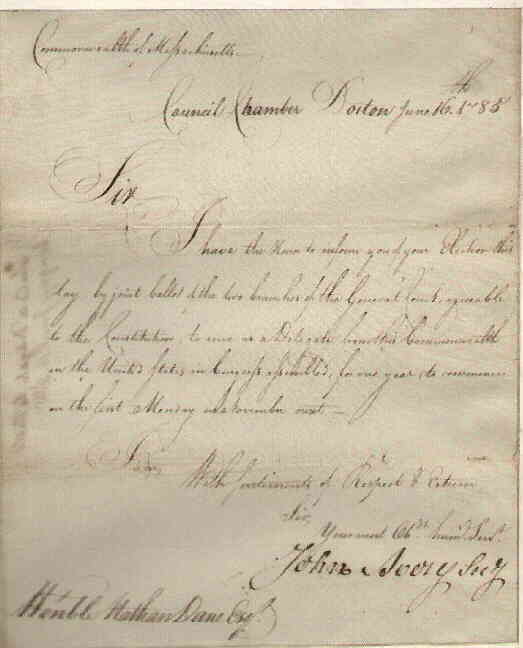 Commonwealth of Massachusetts
Council Chamber Boston June 16th 1785
Sir
I have the Honor to inform you of your Election this
day by joint ballot of the two branches of the General Court, agreeable
to the Constitution, to serve as a Delegate from this Commonwealth
in the United States in Congress assembled, for one year to commence
on the first Monday in November next—
I am,
With Sentiments of Respect & Esteem
Sir,
Your most Obt. humb. Servt.
John Avery Secy
Honble Nathan Dane Esqr.